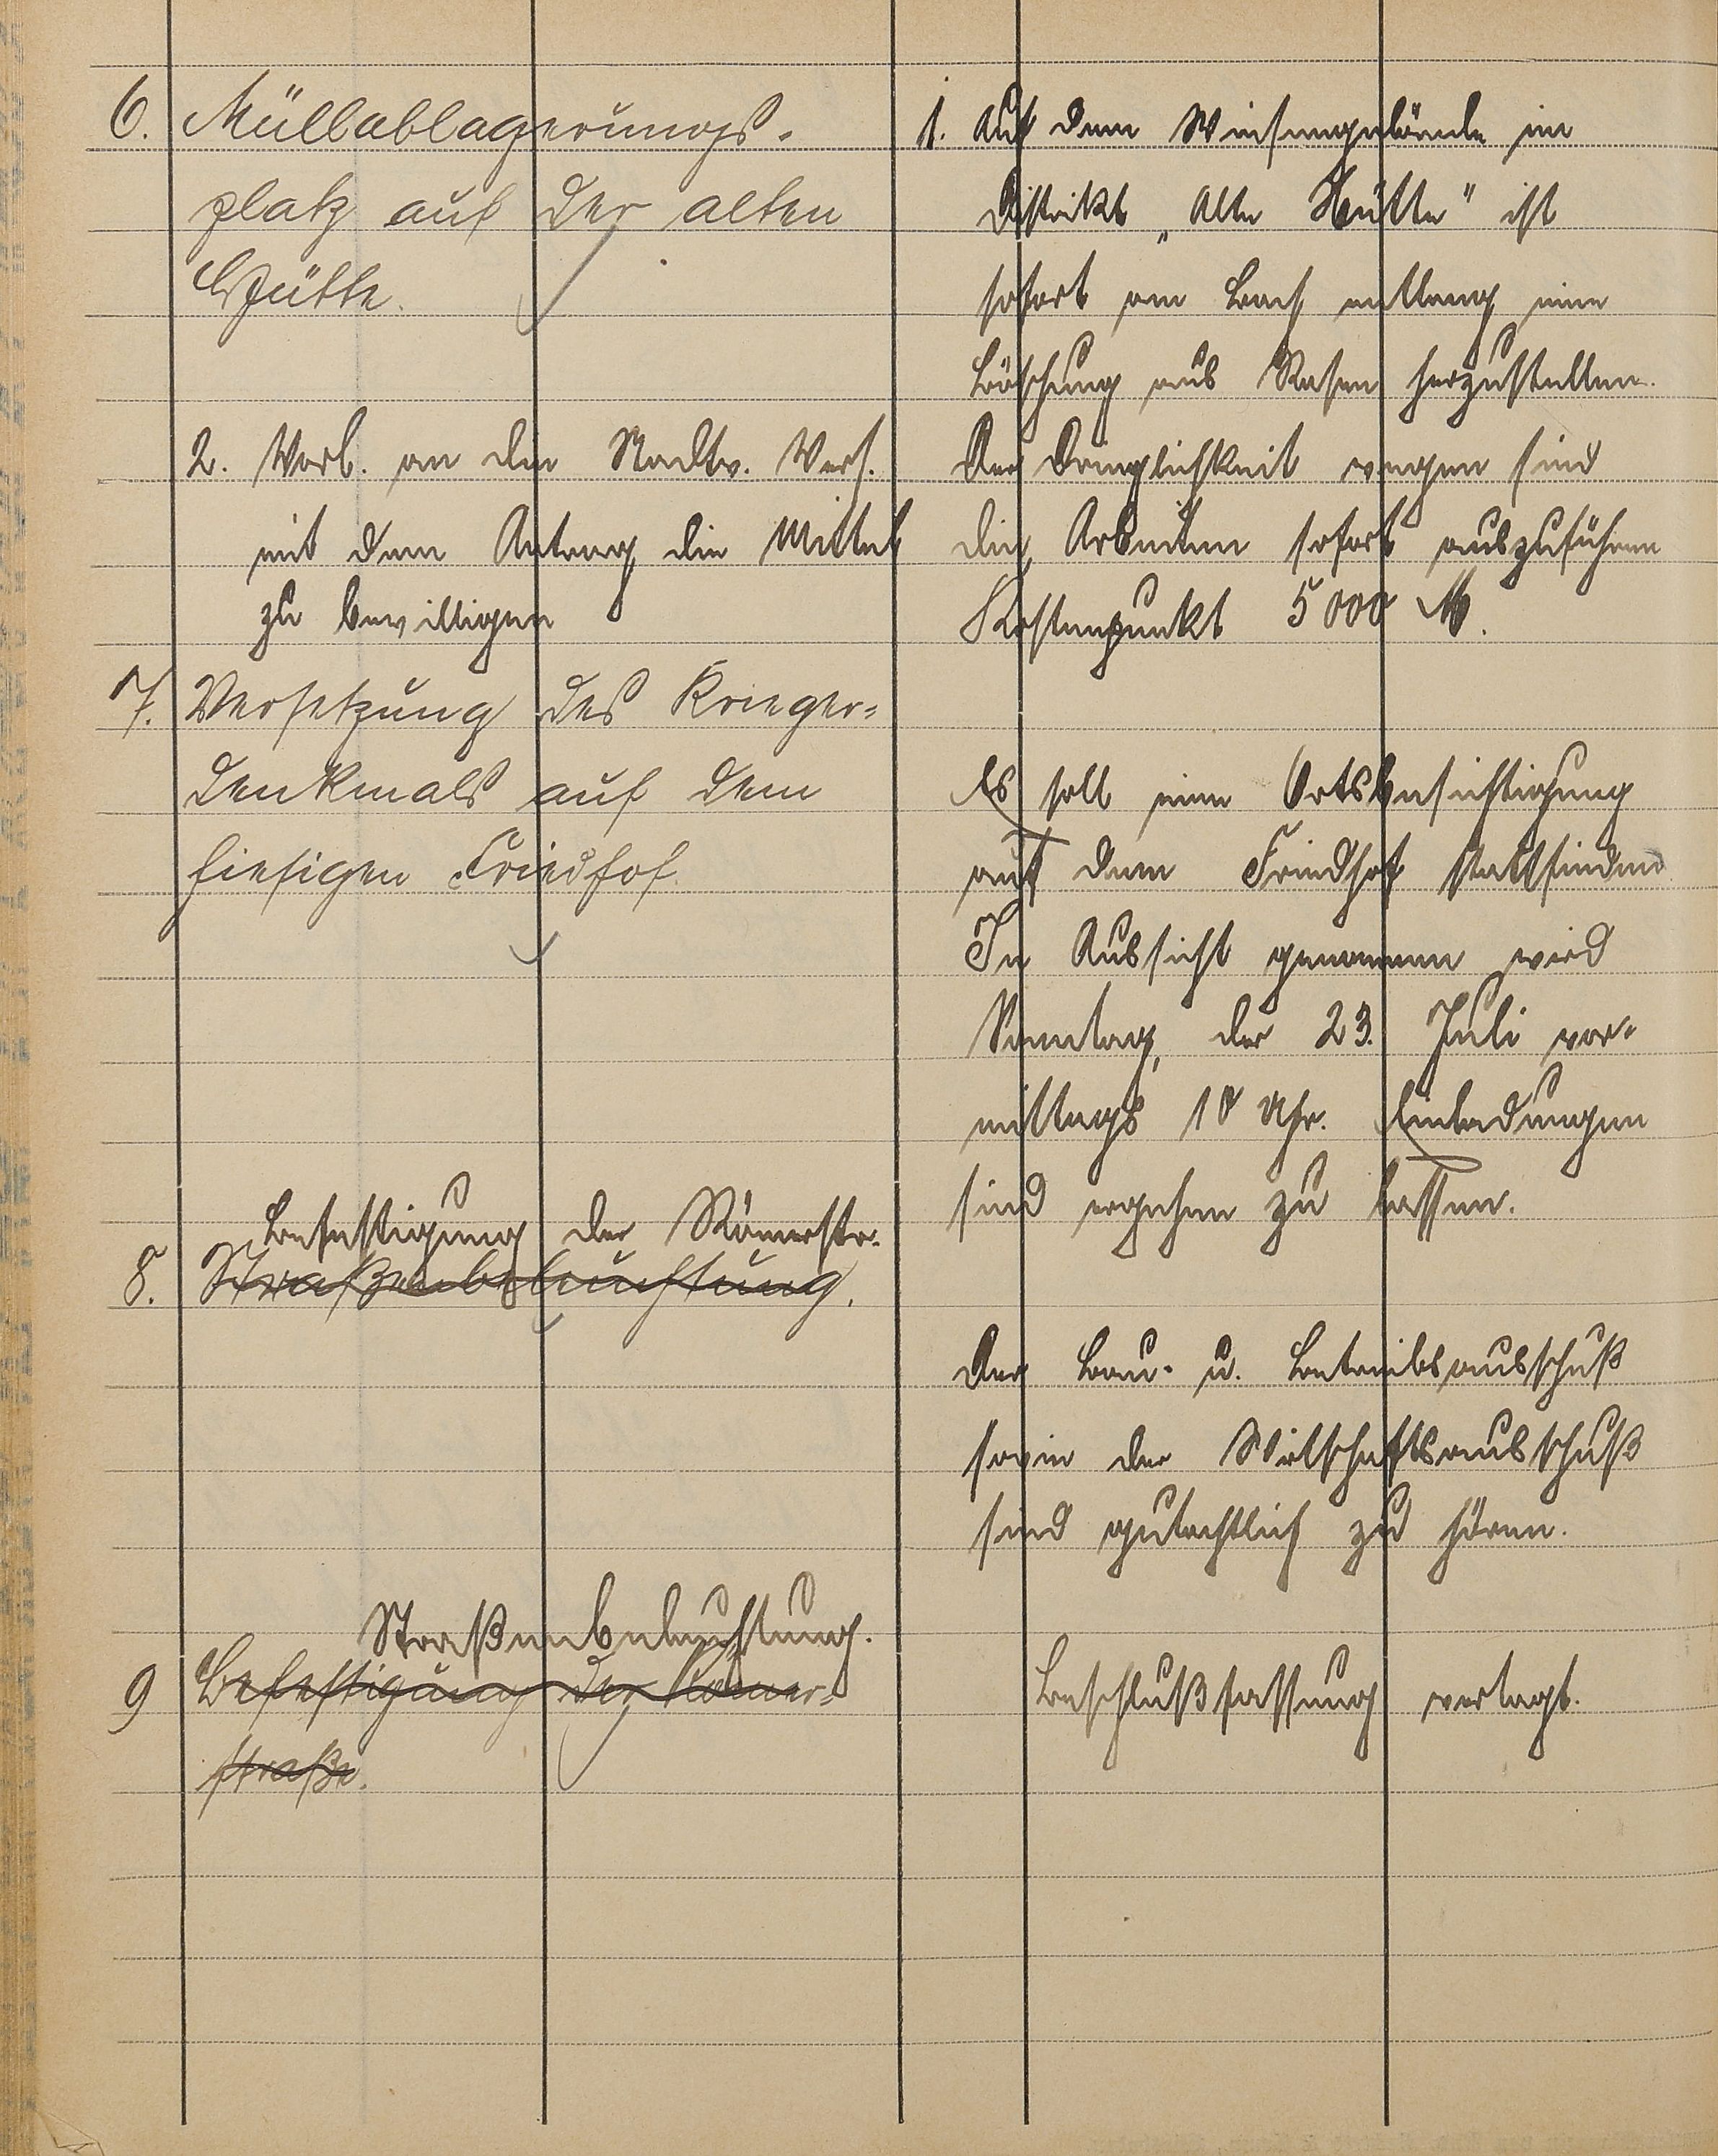 6. Müllablagerungs-
platz auf der alten
Hütte.
1. Auf dem Wiesengelände im
Distrikt „Alte Hütte" ist
sofort am Bach entlang eine
Böschung aus Rasen herzustellen.
Der Dringlichkeit wegen sind
die Arbeiten sofort auszuführen
Kostenpunkt 5000 M.
2. Vorl. an die Stadtv. Vers.
mit dem Antrag die Mittel
zu bewilligen
7. Versetzung des Krieger-
denkmals auf dem
hiesigen Friedhof.
Es soll eine Ortsbesichtigung
auf dem Friedhof stattfinden
In Aussicht genommen wird
Sonntag, der 23. Juli vor-
mittags 10 Uhr. Einladungen
sind ergehen zu lassen.
Befestigung der Römerstr.
8. Straßenbeleuchtung.
Der Bau- u. Betriebsausschuß
sowie der Wirtschaftsausschuß
sind gutachtlich zu hören.
Straßenbeleuchtung.
9 Befestigung der Römer-
straße.
Beschlußfassung vertagt.